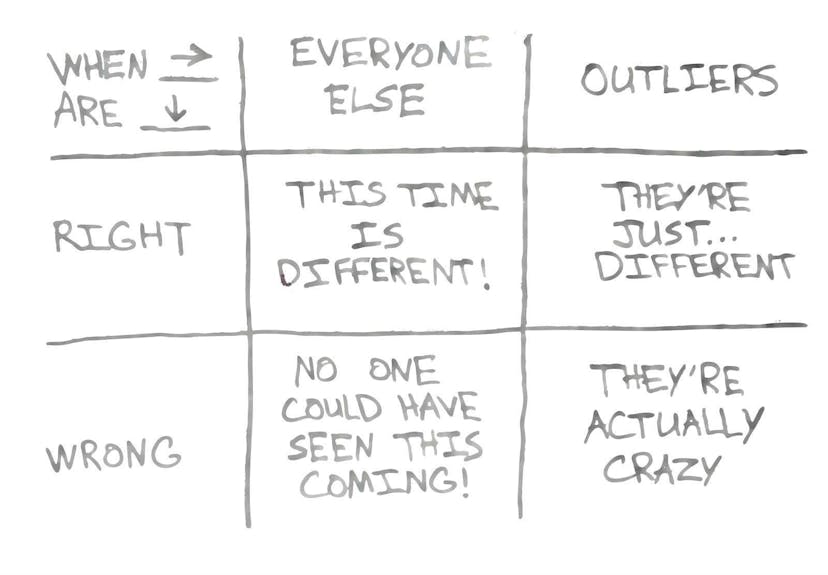 WHEN →
ARE ↓
EVERYONE
ELSE
OUTLIERS
RIGHT
THIS TIME
IS
DIFFERENT!
THEY'RE
JUST...
DIFFERENT
WRONG
NO ONE
COULD HAVE
SEEN THIS
COMING!
THEY'RE
ACTUALLY
CRAZY